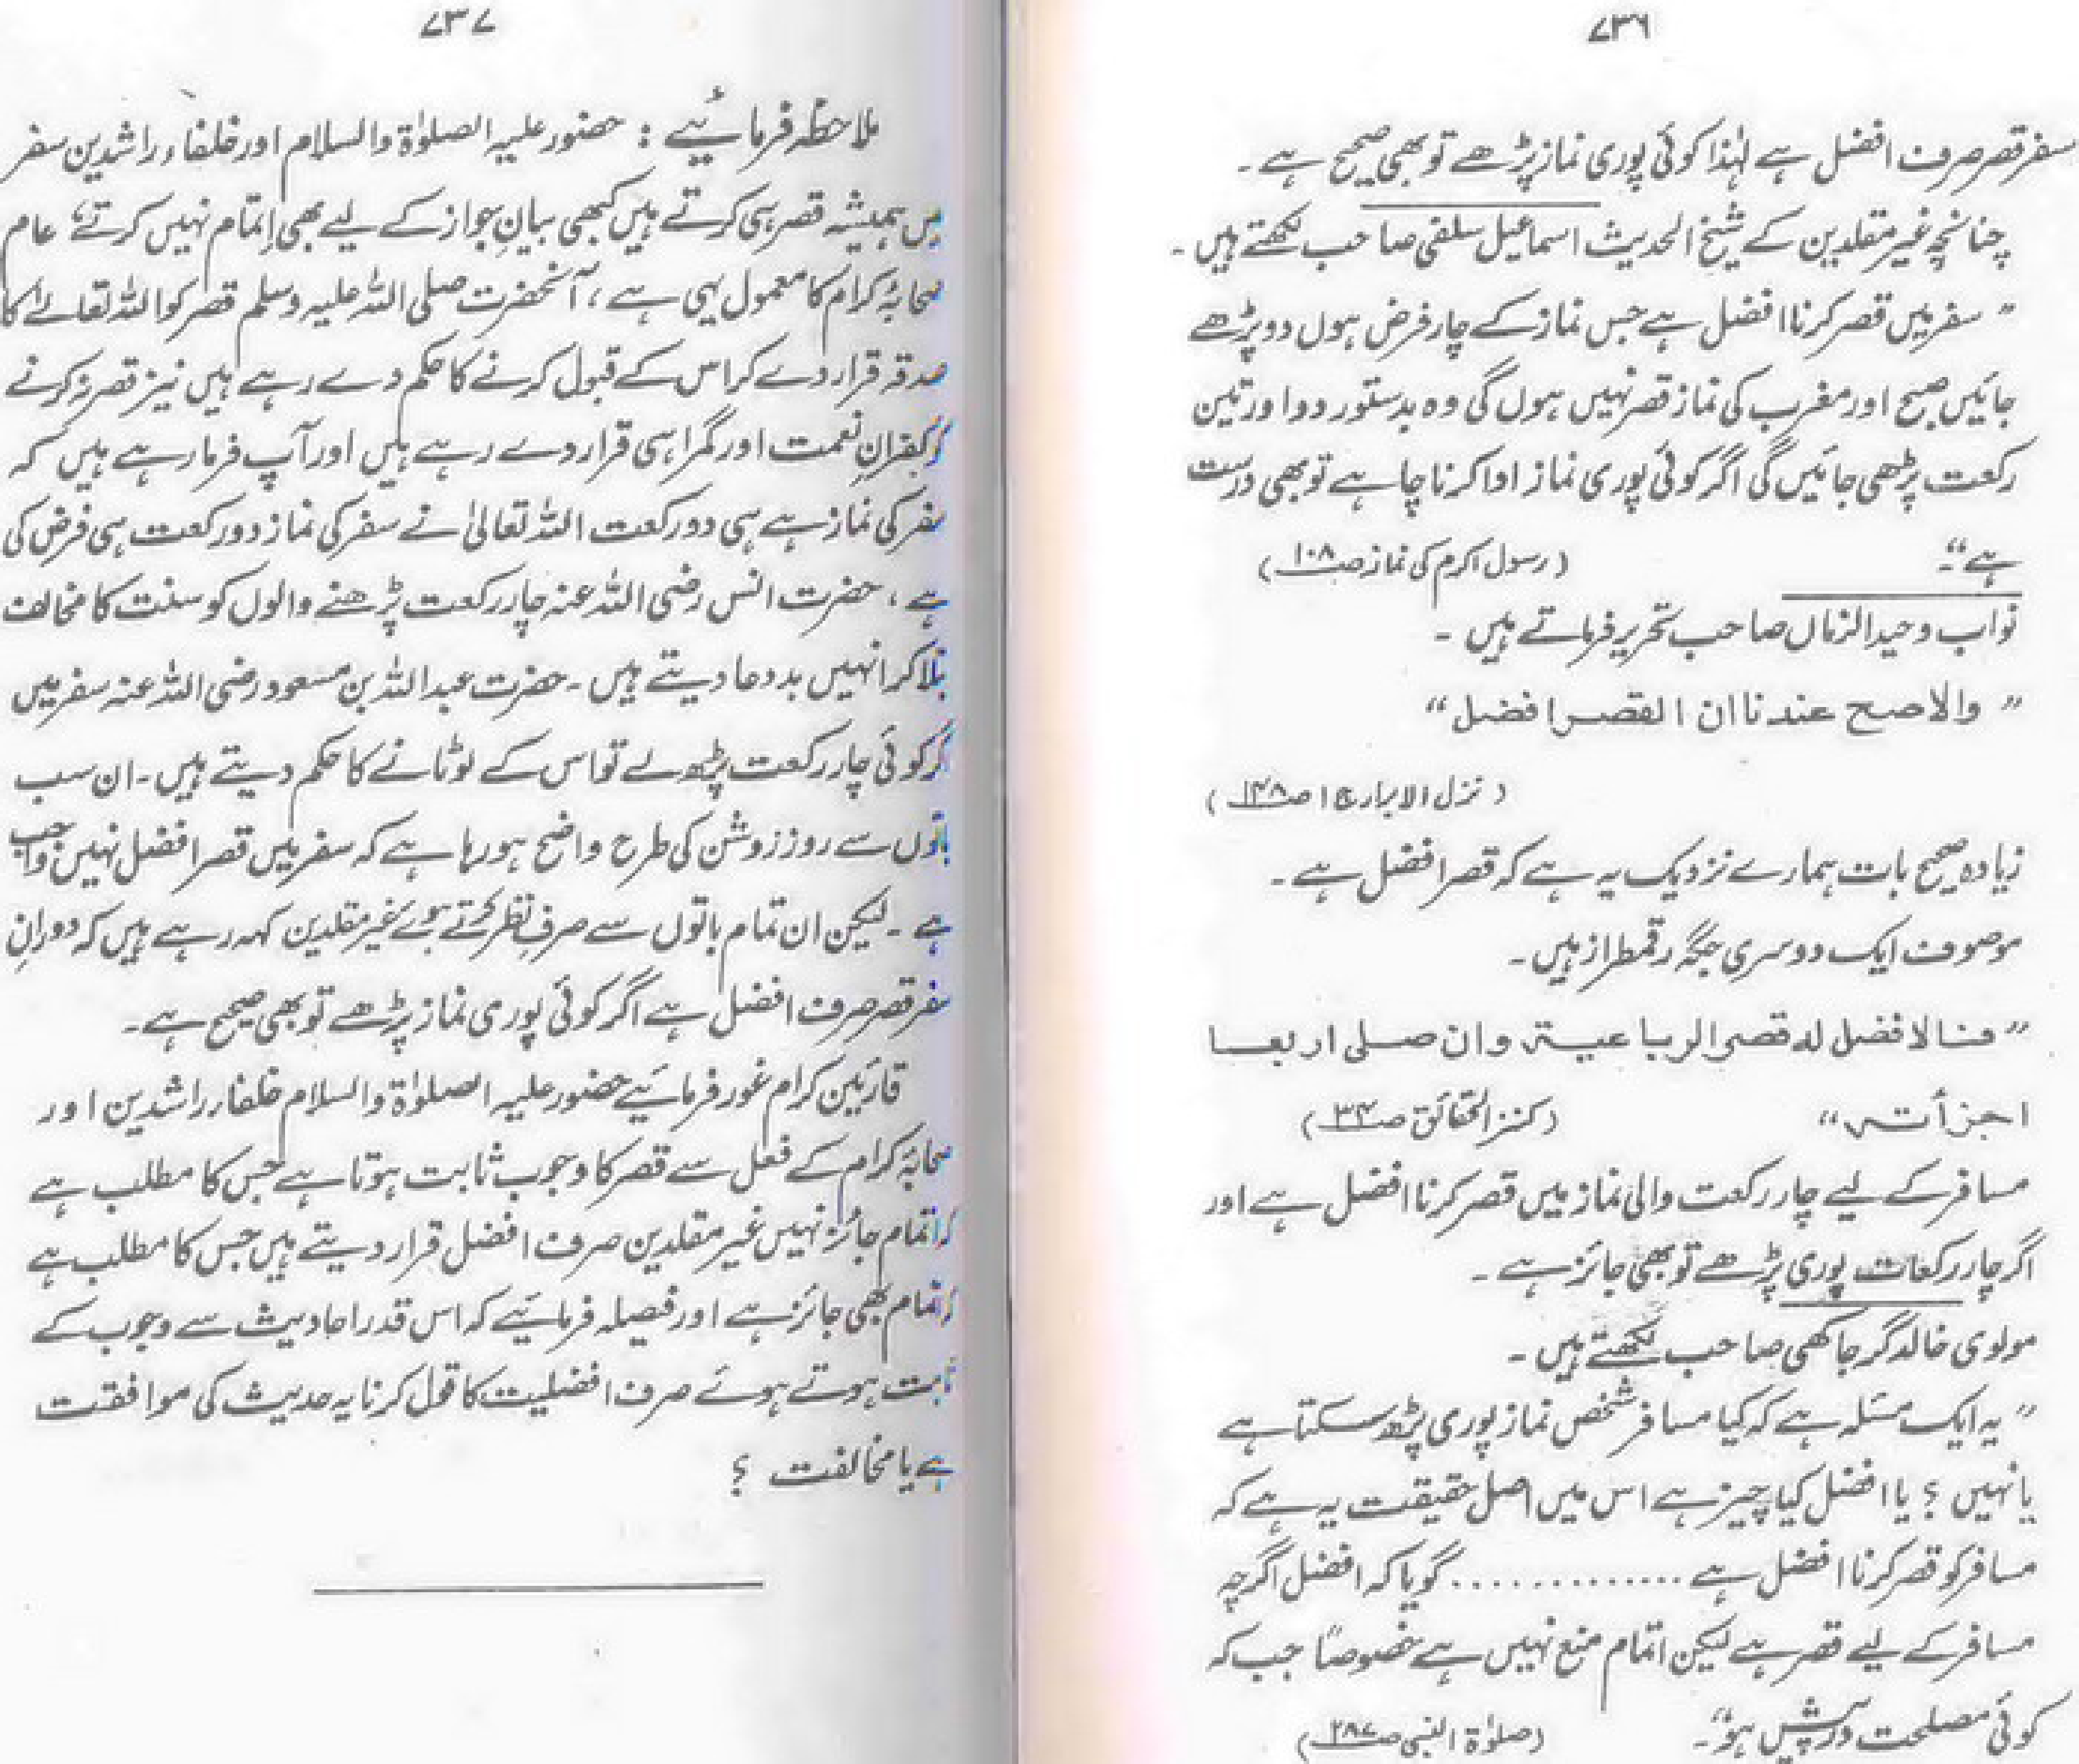 ٧٣٦
سفر قصر صرف افضل ہے لہٰذا کوئی پوری نماز پڑھے تو بھی صحیح ہے ۔
چنانچہ غیر مقلدین کے شیخ الحدیث اسماعیل سلفی صاحب لکھتے ہیں ۔
” سفر میں قصر کرنا افضل ہے جس نماز کے چار فرض ہوں دو پڑھے
جائیں صبح اور مغرب کی نماز قصر نہیں ہوں گی وہ بدستور دو اور تین
رکعت پڑھی جائیں گی اگر کوئی پوری نماز ادا کرنا چاہے تو بھی درست
ہے “۔ (رسول اکرم کی نماز صـ ١٠٨)
نواب وحید الزماں صاحب تحریر فرماتے ہیں ۔
” والاصح عندنا ان القصر افضل “
(نزل الابرار ج ا صـ ١٤٨)
زیادہ صحیح بات ہمارے نزدیک یہ ہے کہ قصر افضل ہے ۔
موصوف ایک دوسری جگہ رقمطراز ہیں ۔
” فالافضل له قصر الرباعية وان صلى اربعا
اجزأته “ (کنز الحقائق صـ ٣٤)
مسافر کے لیے چار رکعت والی نماز میں قصر کرنا افضل ہے اور
اگر چار رکعات پوری پڑھے تو بھی جائز ہے ۔
مولوی خالد گرجاکھی صاحب لکھتے ہیں ۔
” یہ ایک مسئلہ ہے کہ کیا مسافر شخص نماز پوری پڑھ سکتا ہے
یا نہیں ؟ یا افضل کیا چیز ہے اس میں اصل حقیقت یہ ہے کہ
مسافر کو قصر کرنا افضل ہے ............. گویا کہ افضل اگرچہ
مسافر کے لیے قصر ہے لیکن اتمام منع نہیں ہے خصوصاً جب کہ
کوئی مصلحت درپیش ہو “۔ (صلوٰۃ النبی صـ ٢٨٧)
٧٣٧
ملاحظہ فرمائیے : حضور علیہ الصلوٰۃ والسلام اور خلفاء راشدین سفر
میں ہمیشہ قصر ہی کرتے ہیں کبھی بیانِ جواز کے لیے بھی اِتمام نہیں کرتے، عام
صحابۂ کرام کا معمول یہی ہے ، آنحضرت صلی اللہ علیہ وسلم قصر کو اللہ تعالےٰ کا
صدقہ قرار دے کر اس کے قبول کرنے کا حکم دے رہے ہیں نیز قصر نہ کرنے
کو کفرانِ نعمت اور گمراہی قرار دے رہے ہیں اور آپ فرما رہے ہیں کہ
سفر کی نماز ہے ہی دو رکعت اللہ تعالیٰ نے سفر کی نماز دو رکعت ہی فرض کی
ہے ، حضرت انس رضی اللہ عنہ چار رکعت پڑھنے والوں کو سنت کا مخالف
بتلا کر انہیں بددعا دیتے ہیں ۔ حضرت عبداللہ بن مسعود رضی اللہ عنہ سفر میں
اگر کوئی چار رکعت پڑھ لے تو اس کے لوٹانے کا حکم دیتے ہیں ۔ ان سب
باتوں سے روز زوشن کی طرح واضح ہو رہا ہے کہ سفر میں قصر افضل نہیں واجب
ہے ۔ لیکن ان تمام باتوں سے صرفِ نظر کرتے ہوئے غیر مقلدین کہہ رہے ہیں کہ دورانِ
سفر قصر صرف افضل ہے اگر کوئی پوری نماز پڑھے تو بھی صحیح ہے ۔
قارئین کرام غور فرمائیے حضور علیہ الصلوٰۃ والسلام خلفاء راشدین اور
صحابۂ کرام کے فعل سے قصر کا وجوب ثابت ہوتا ہے جس کا مطلب ہے
کہ اتمام جائز نہیں غیر مقلدین صرف افضل قرار دیتے ہیں جس کا مطلب ہے
کہ اتمام بھی جائز ہے اور فیصلہ فرمائیے کہ اس قدر احادیث سے وجوب کے
ثابت ہوتے ہوئے صرف افضلیت کا قول کرنا یہ حدیث کی موافقت
ہے یا مخالفت ؟